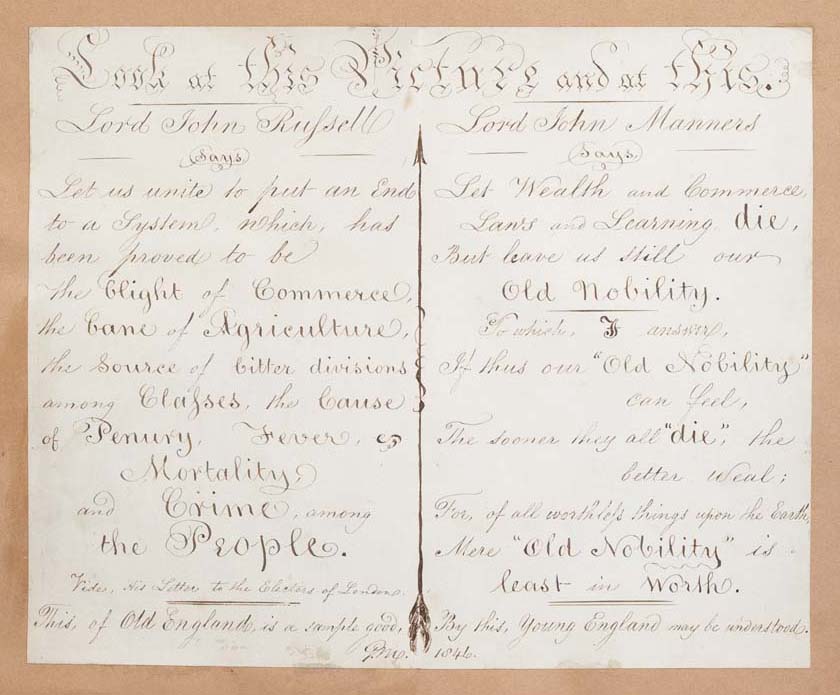 Look at this Picture and at this.
Lord John Ruſsell
Says
Let us unite to put an End
to a System, which, has
been proved to be
the blight of Commerce,
the bane of Agriculture,
the Source of bitter divisions
among Claſses, the Cause
of Penury, Fever, &
Mortality,
and Crime, among
the People.
Vide, His Letter to the Electors of London.
This, of Old England, is a sample good,
Lord John Manners
Says
Let Wealth and Commerce,
Laws and Learning, die,
But leave us still our
Old Nobility.
To which, I answer,
If thus our "Old Nobility"
can feel,
The sooner they all "die", the
better weal;
For, of all worthleſs things upon the Earth,
Mere "Old Nobility" is
least in Worth.
By this, Young England may be understood.
1846.